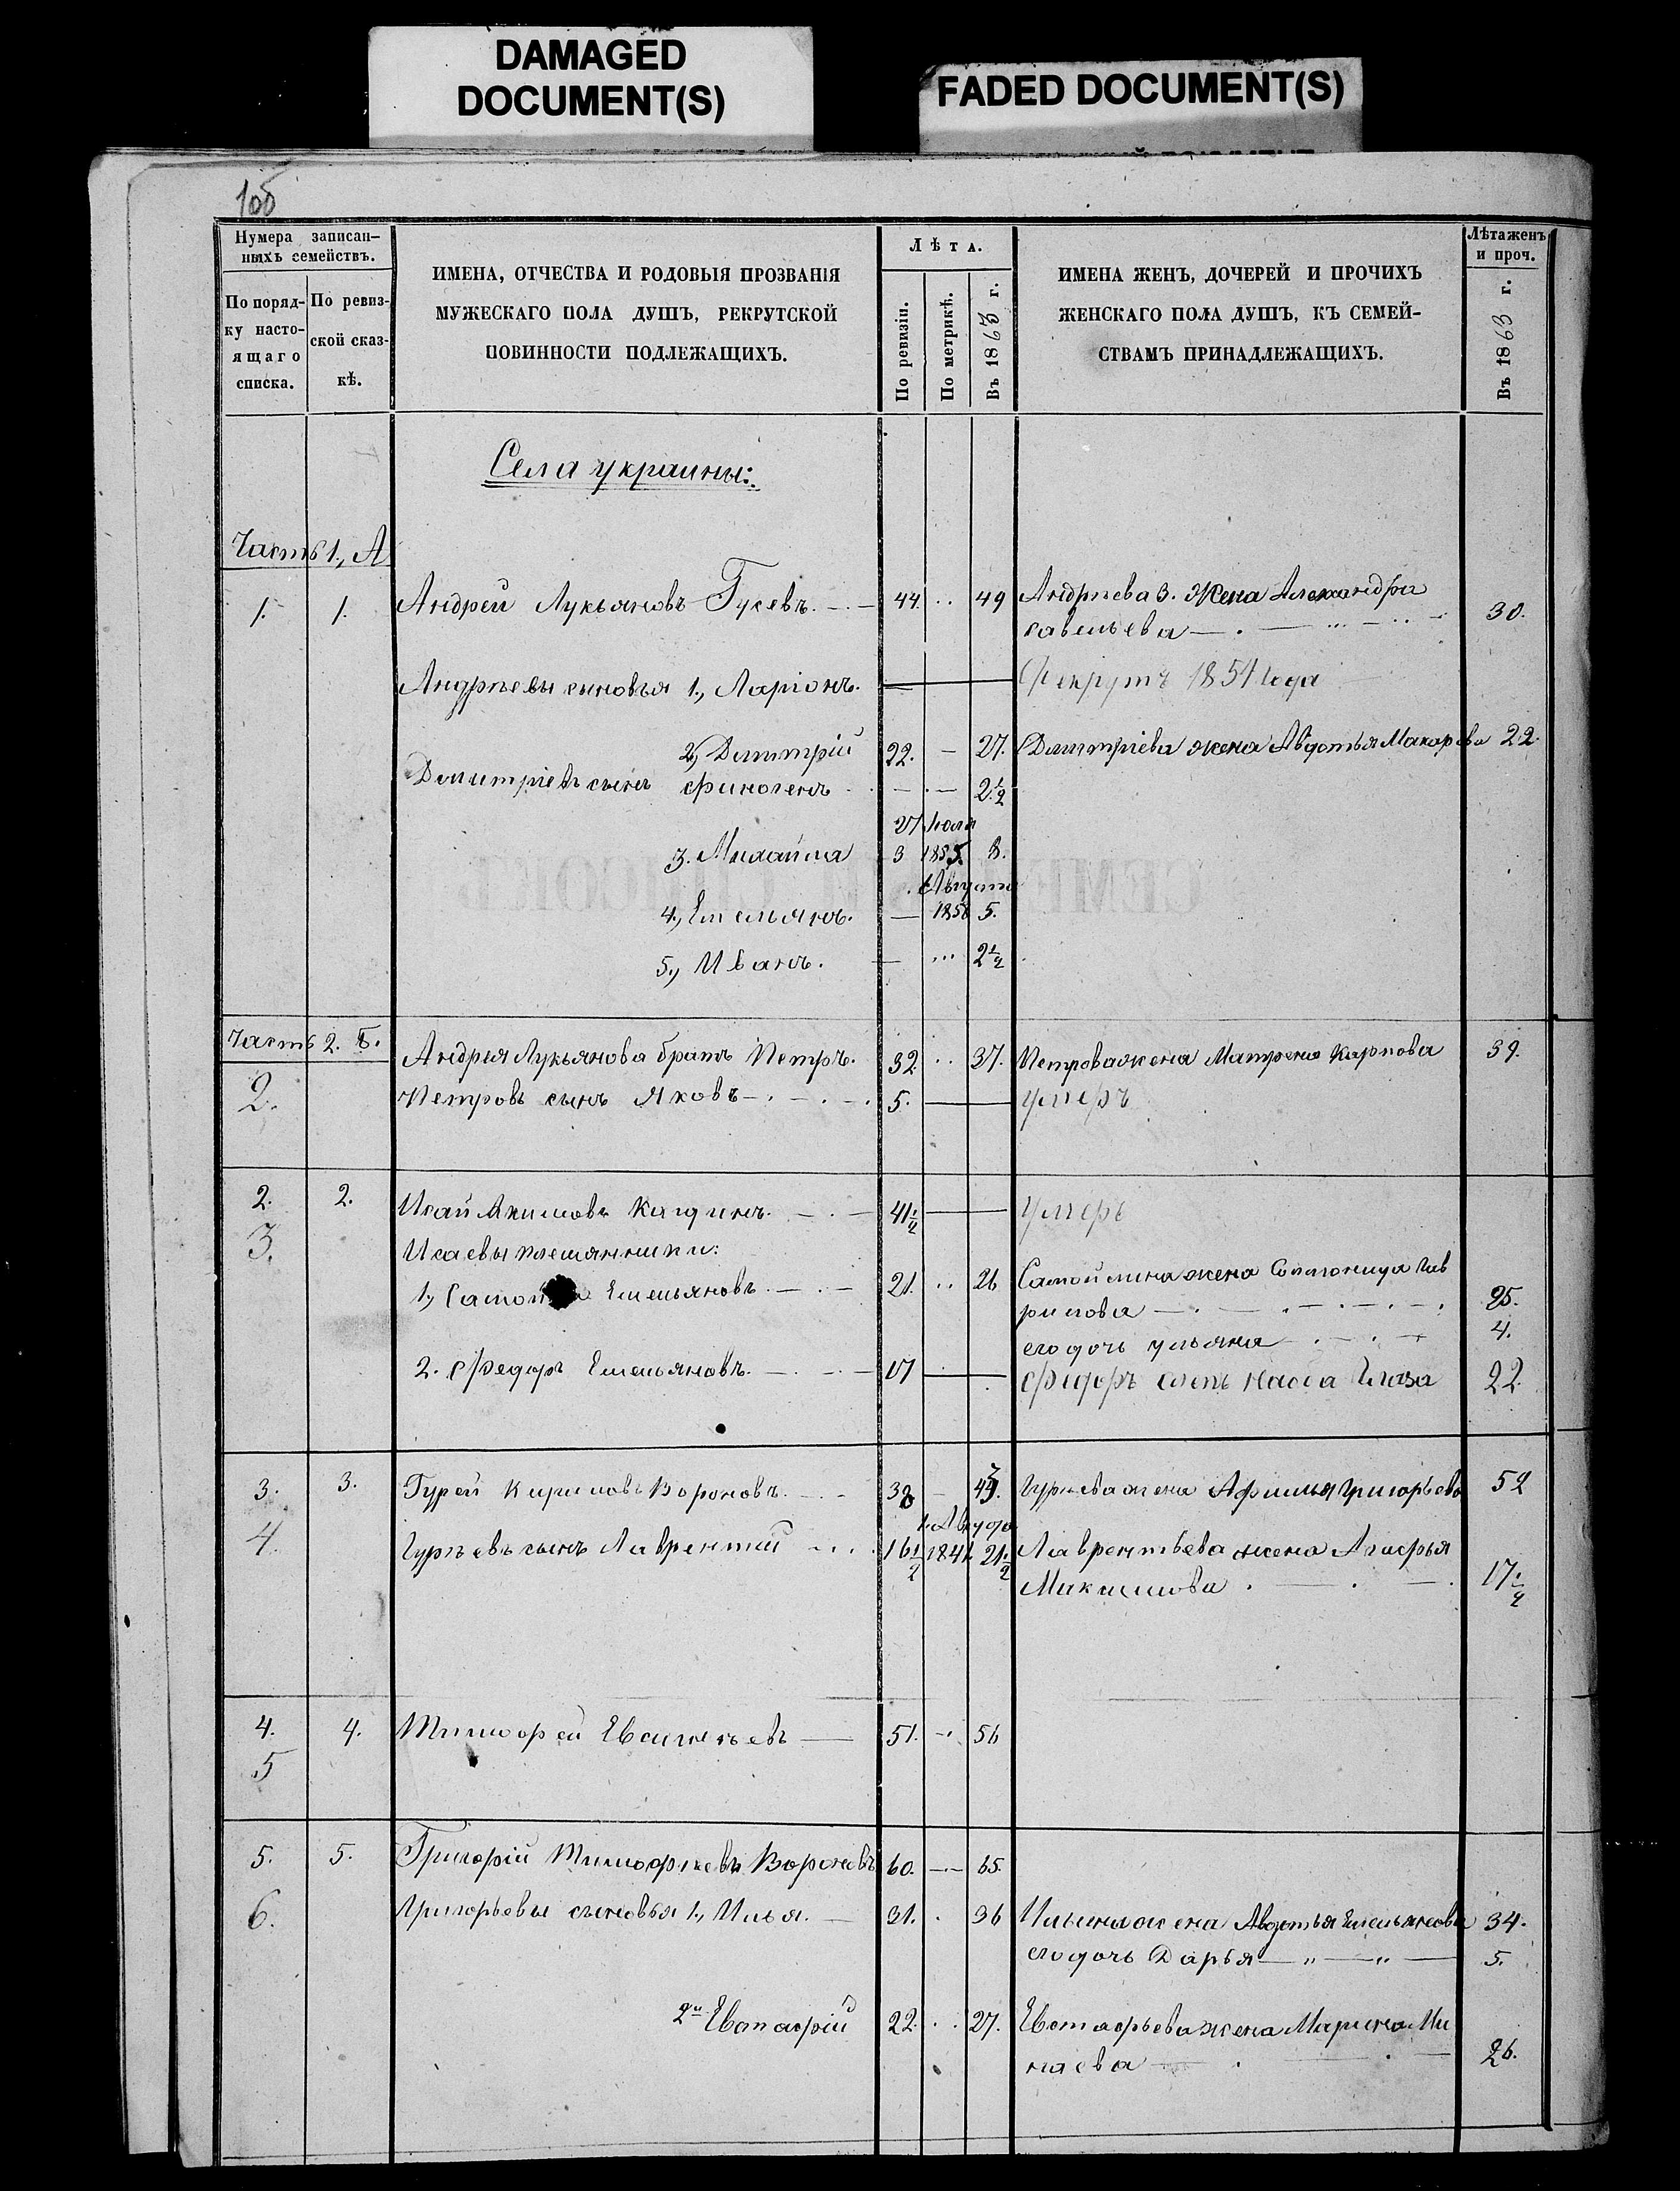 DAMAGED
DOCUMENT(S)
FADED DOCUMENT(S)
100
Нумера записан-
ныхъ семействъ.
По поряд-
ку насто-
ящаго
списка.
По ревиз-
ской сказ-
кѣ.
ИМЕНА, ОТЧЕСТВА И РОДОВЫЯ ПРОЗВАНІЯ
МУЖЕСКАГО ПОЛА ДУШЪ, РЕКРУТСКОЙ
ПОВИННОСТИ ПОДЛЕЖАЩИХЪ.
Лѣта.
По ревизіи.
По метрикѣ.
Въ 1863 г.
ИМЕНА ЖЕНЪ, ДОЧЕРЕЙ И ПРОЧИХЪ
ЖЕНСКАГО ПОЛА ДУШЪ, КЪ СЕМЕЙ-
СТВАМЪ ПРИНАДЛЕЖАЩИХЪ.
Лѣта женъ
и проч.
Въ 1863 г.
Села украины:
Часть 1, А
1. 1. Андрей Лукьяновъ Гусевъ. 44. 49 Андрѣева 3. жена Александра
Савельева 30.
Андрѣевы сыновья 1, Ларіонъ. Рекрутъ 1854 года
2, Дмитрій 22. 27. Дмитріева жена Авдотья Макарова 22.
Дмитріевъ сынъ Финогенъ 2 1/2
27 Іюля
3. Михайла 3 1855. 8.
Августа
4, Емельянъ. 1858 5.
5, Иванъ. 2 1/2
Часть 2. Б.
2. Андрея Лукьянова братъ Петръ. 32. 37. Петрова жена Матрена Карпова 39.
Петровъ сынъ Яковъ 5. умеръ
2. 2. Исай Акимовъ 41 1/2 умеръ
3. Исаевы племянники:
1, Емельяновъ 21. 26 Самойлина жена Соломонида Гав
рилова 25.
его дочь ульяна 4.
2. Федоръ Емельяновъ. 17 Федоръ слепъ глаза 22
3. 3. Гурей Кириловъ Вороновъ. 38 Гурьева жена Афимья Григорьева 52
4. Гурьевъ сынъ Лаврентій 16 1/2 1841 21 1/2 Лаврентьева жена Агафья
Максимова 17 1/2
4. 4. Тимофей 51. 56
5
5. 5. Григорій Тимофеевъ Вороновъ 60. 65.
6. Григорьевы сыновья 1, Илья. 31. 36 Ильина жена Авдотья Емельянова 34.
его дочь Дарья 5.
2й Евстафій 22. 27. Евстафьева жена Марина Ми
наева 26.